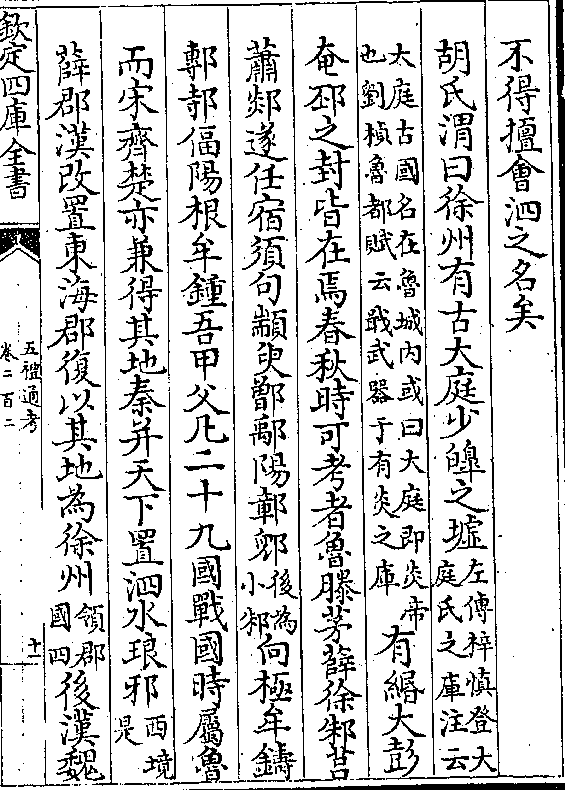 不得擅會泗之名矣
胡氏渭曰徐州有古大庭少皥之墟左傳梓慎登大
庭氏之庫注云
大庭古國名在魯城内或曰大庭即炎帝
也劉楨魯都賦云戢武器于有炎之庫有緡大彭
奄邳之封皆在焉春秋時可考者魯滕茅薛徐邾莒
蕭郯遂任宿須句顓臾鄫鄅陽鄣郳後為小邾向極牟鑄
鄟邿偪陽根牟鍾吾甲父凡二十九國戰國時屬魯
而宋齊楚亦兼得其地秦并天下置泗水琅邪西境是
薛郡漢改置東海郡復以其地為徐州領郡國四後漢魏
欽定四庫全書
五禮通考
卷二百二
十一